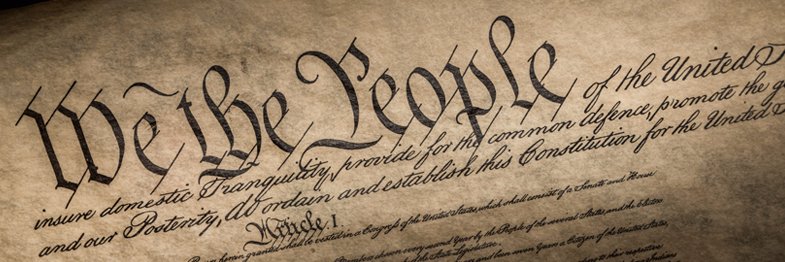 We the People of the United
insure domestic Tranquility, provide for the common defence, promote the
and our Posterity, do ordain and establish this Constitution for the United
Article. I
herein granted shall be vested in a Congress of the United States, which shall consist of a Senate and House
chosen every second Year by the People of the several States, and the
of the State Legislature.
and been seven Years a Citizen of the United States,
their respective